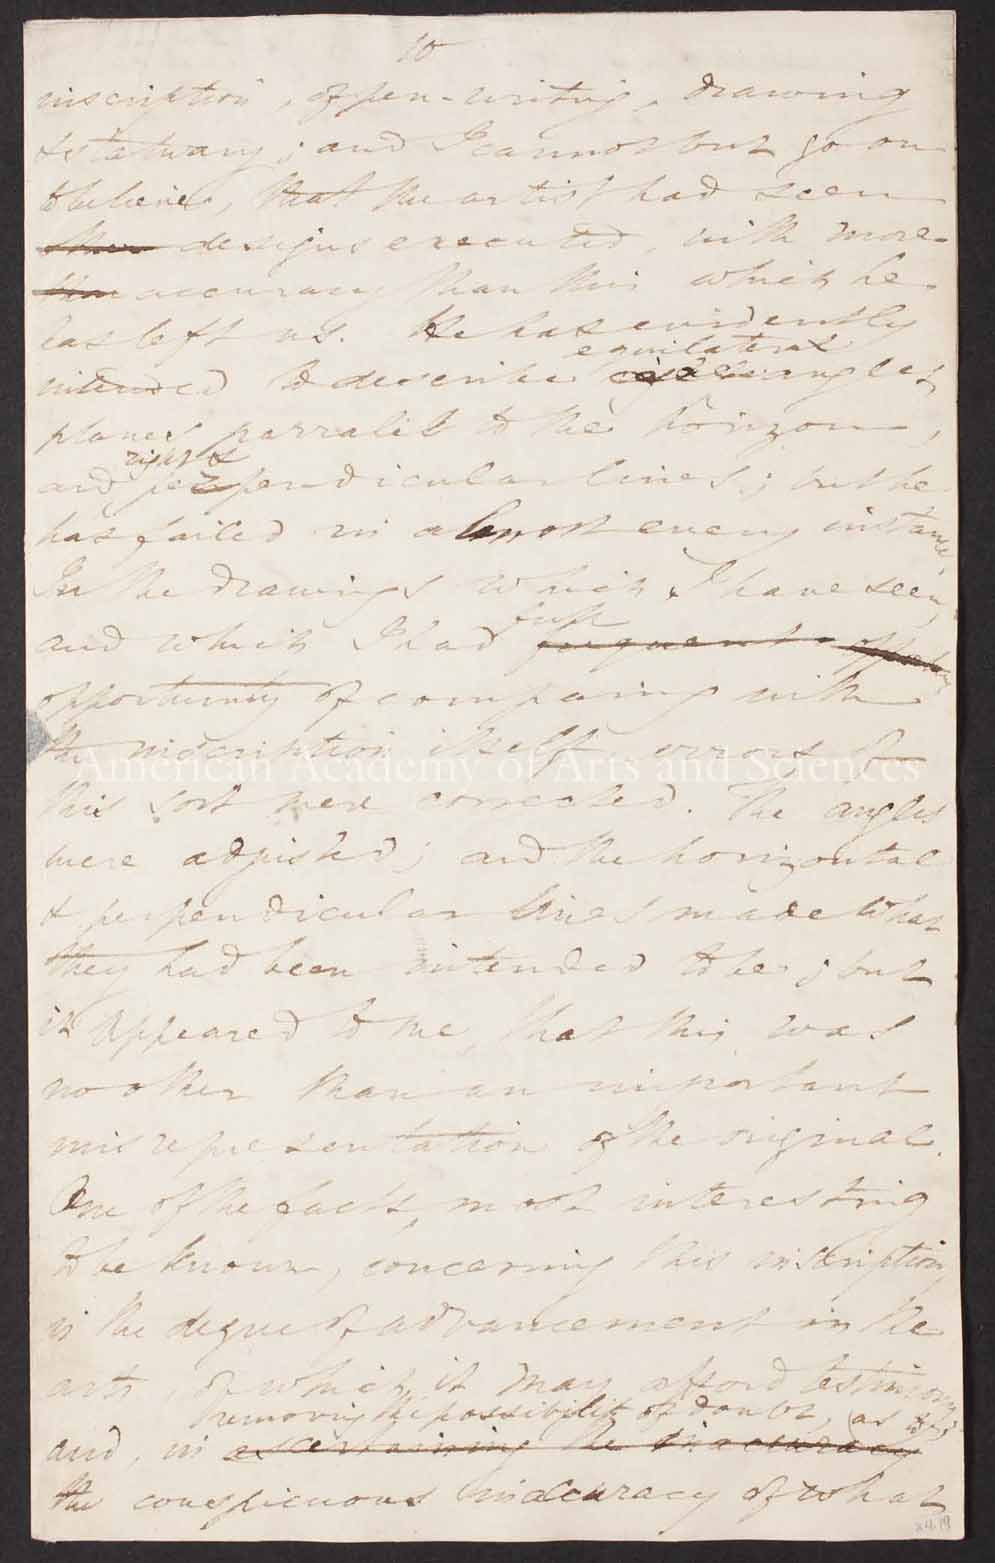 10
inscription, of pen-writing, drawing
& statuary; and I cannot but go on
to believe, that the artist had seen
designs executed, with more
accuracy than this which he
has left us. He has evidently
equilateral
intended to describe angles,
planes parralel to the horizon,
right &
and perpendicular lines; but he
has failed in almost every instance.
In the drawings which I have seen,
full
and which I had frequent
opportunity of comparing with
the inscription itself errors of
American Academy of Arts and Sciences
this sort were corrected. The angles
were adjusted; and the horizontal
& perpendicular lines made what
they had been intended to be; but
it appeared to me, that this was
no other than an important
misrepresentation of the original.
One of the facts, most interesting
to be known, concerning this inscription
is the degree of advancement in the
arts, of which it may afford testimony
removing the possibility of doubt, (as to
and, in ascertaining the inaccuracy
the conspicuous inaccuracy of what